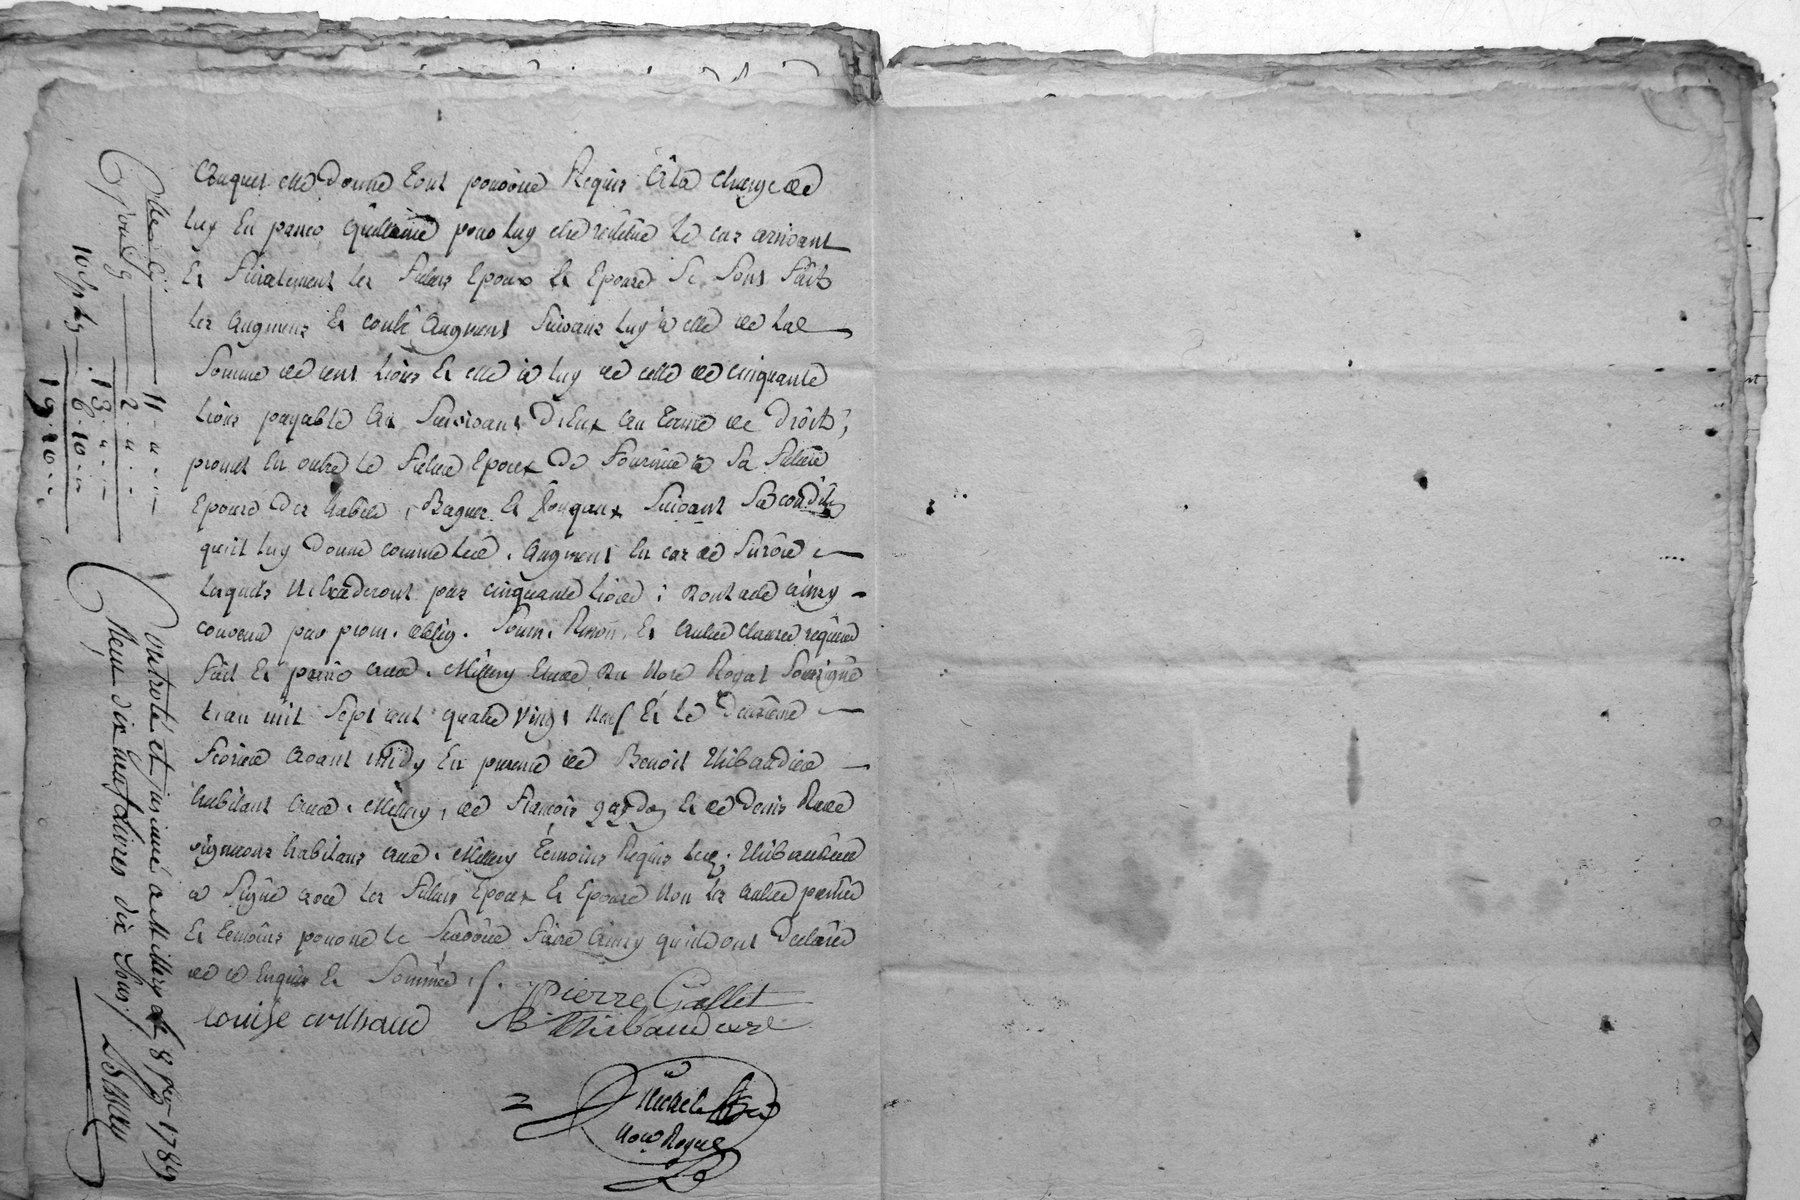 elle donne tout pouvoir Requis à la charge de
luy En passer quittance pour luy être le cas arrivant
Et finalement les futurs Epoux Et Epouse se sont fait
les augment Et contre augment suivans luy à elle de la
somme de cent livres Et elle à luy de celle de cinquante
livres payable au survivant d'eux au terme de droit,
promet En outre le futur Epoux de fournir à sa future
Epouse des habits, Bagues Et joyaux suivant sa condition
qu'il luy donne comme led. augment En cas de survie
lesquels par cinquante livres; tout ainsy
convenu par prom. oblig. soum. Renon. Et autres clauses requises
fait Et passé aud. Millery Etude du Nore Royal soussigné
l'an mil sept cent quatre vingt neuf Et le deuxieme
fevrier avant midy En presence de Benoit Thibaudier
habitant aud. Millery, de François Et de Denis
vignerons habitans aud. Millery témoins Requis led. Thibaudier
a signé avec les futurs Epoux Et Epouse Non les autres parties
Et temoins pour ne le sçavoir faire ainsy qu'ils ont declaré
de ce Enquis Et sommés ./.
Pierre Gallet
Louise crilhaud B Thibaudier
Michel
Nore Royal
11
2
13
10 s. p. L. 6 . 10
19 . 10
Controlé et insinué a Millery le 8 fev. 1789
Reçu dix neuf livres dix sous /.